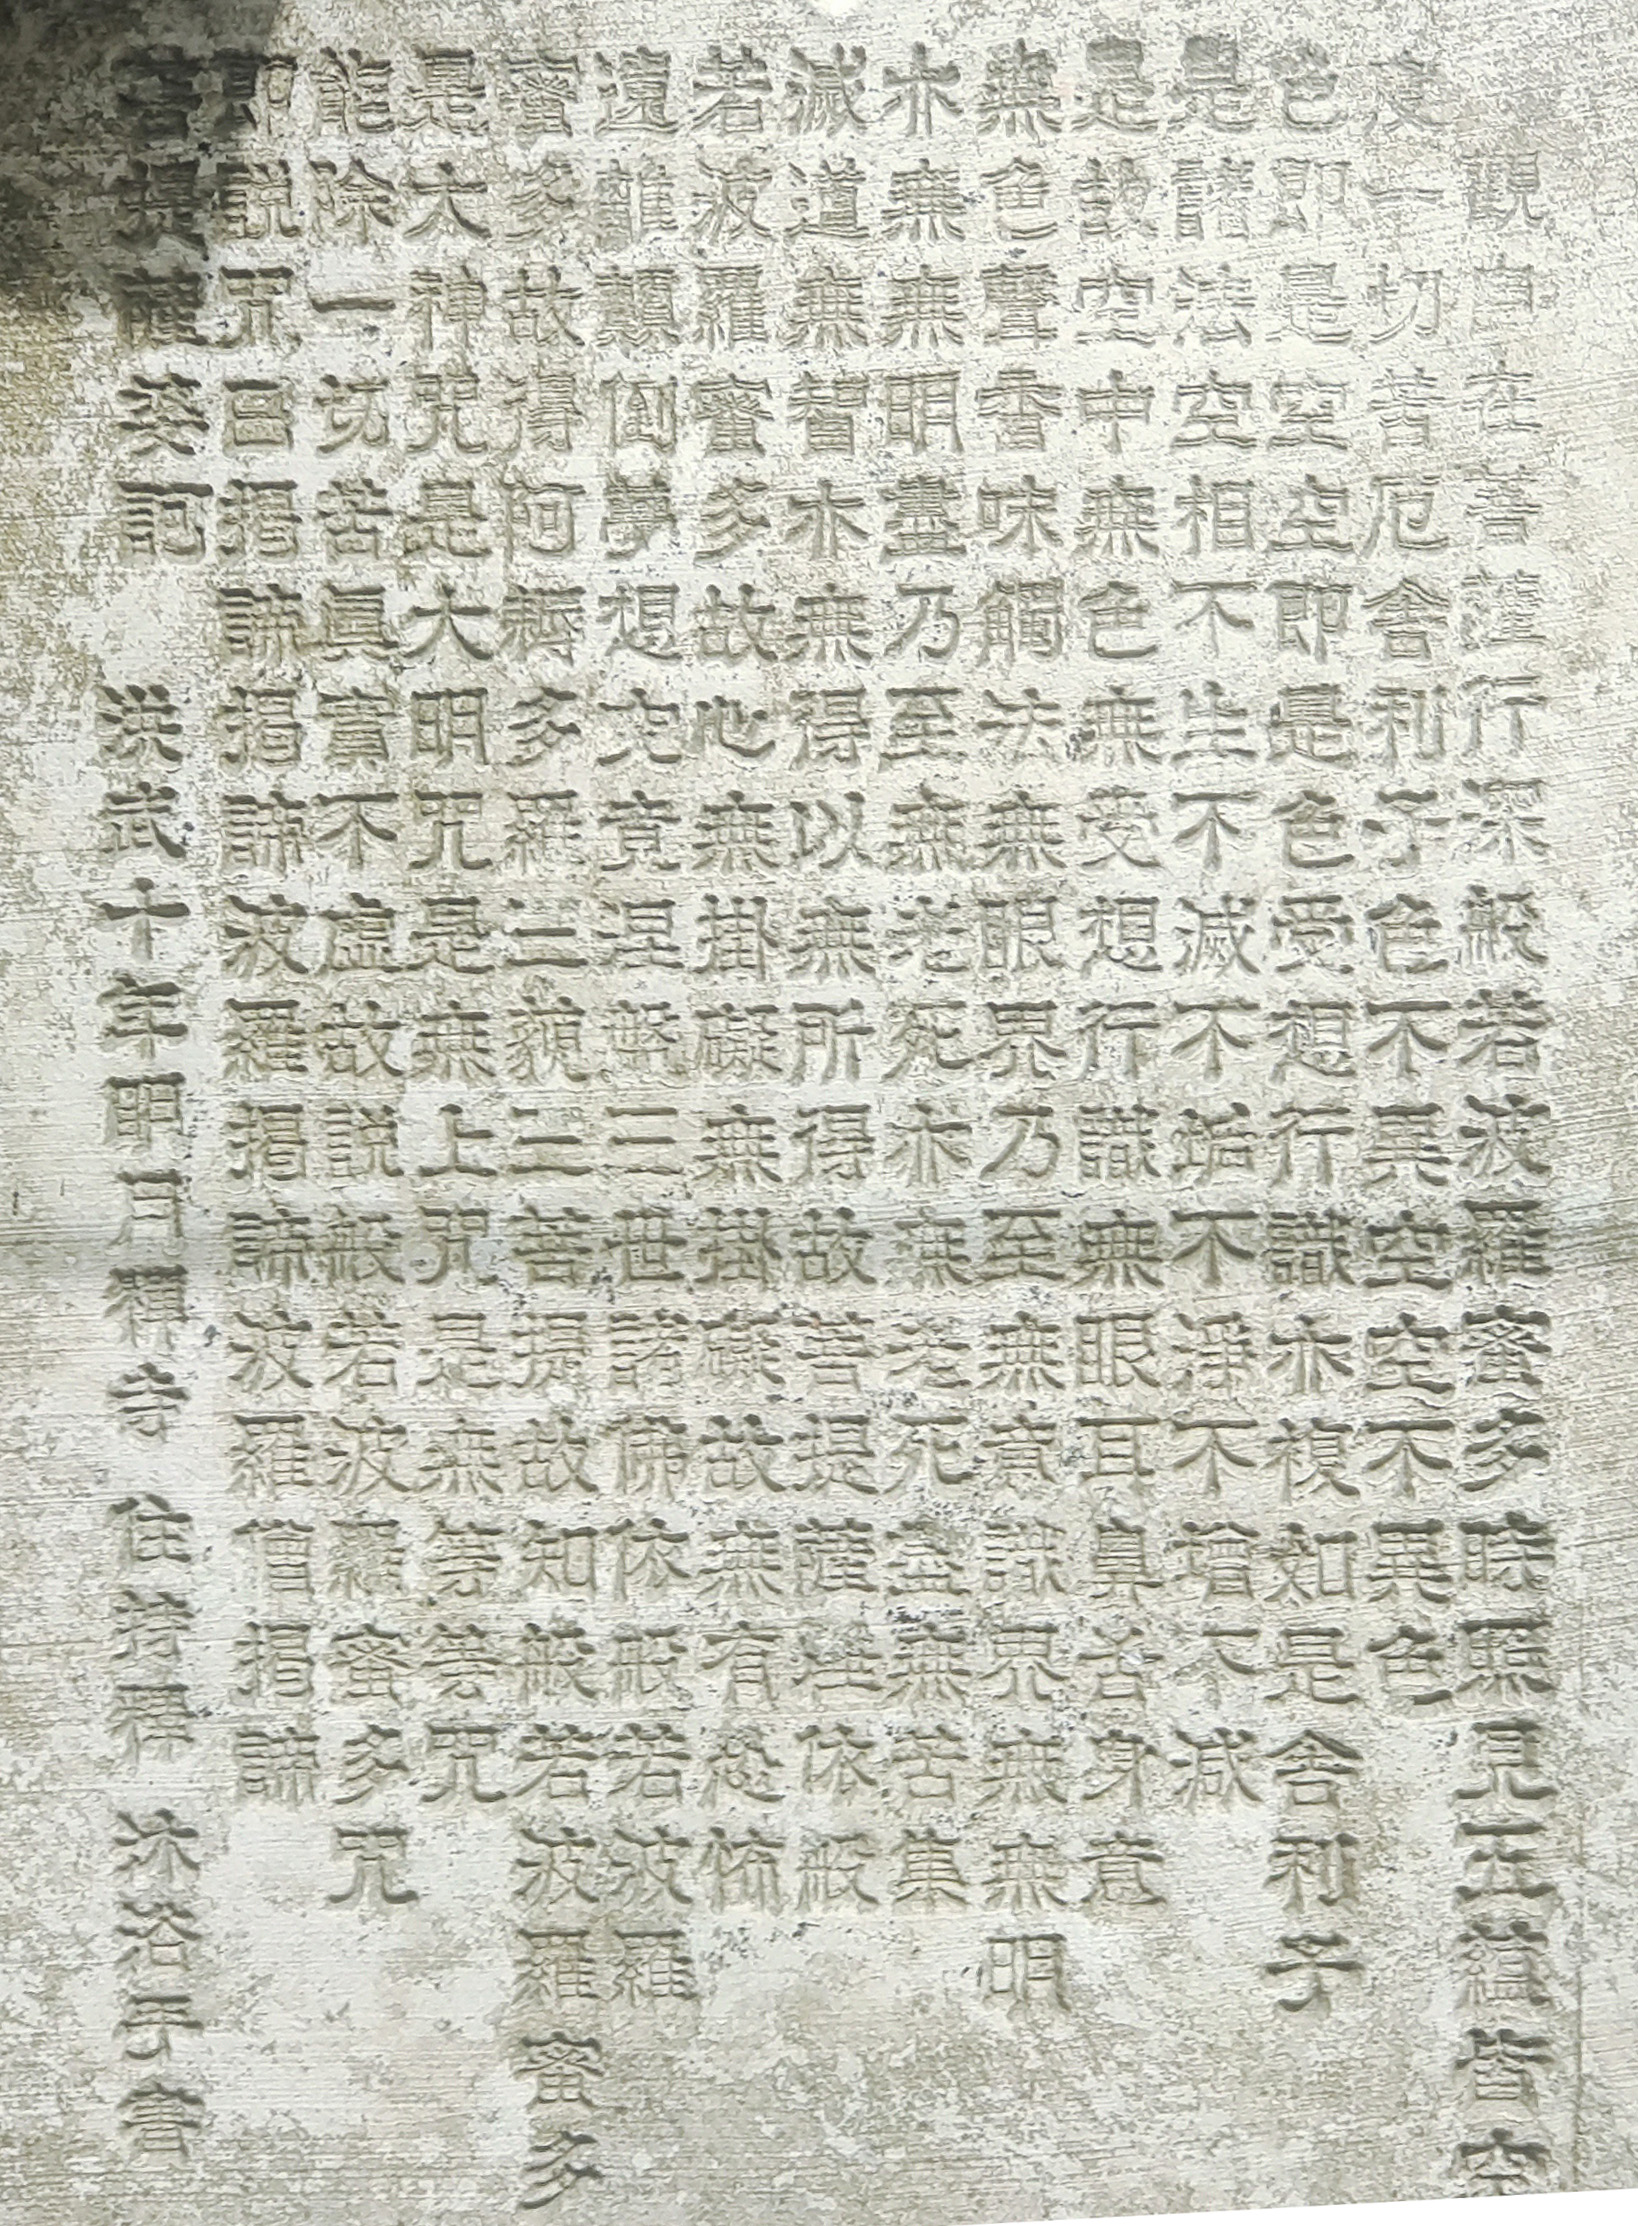 觀自在菩薩行深般若波羅蜜多時照見五蘊皆空
度一切苦厄舍利子色不異空空不異色
色即是空空即是色受想行識亦複如是舍利子
是諸法空相不生不滅不垢不淨不增不減
是故空中無色無受想行識無眼耳鼻舌身意
無色聲香味觸法無眼界乃至無意識界無無明
亦無無明盡乃至無老死亦無老死盡無苦集
滅道無智亦無得以無所得故菩提薩埵依般
若波羅蜜多故心無掛礙無掛礙故無有恐怖
遠離顛倒夢想究竟涅槃三世諸佛依般若波羅
蜜多故得阿耨多羅三藐三菩提故知般若波羅蜜多
是大神咒是大明咒是無上咒是無等等咒
能除一切苦真實不虛故說般若波羅蜜多咒
即說咒曰揭諦揭諦波羅揭諦波羅僧揭諦
菩提薩婆訶 洪武十年明月禪寺 住持釋 沐浴手書